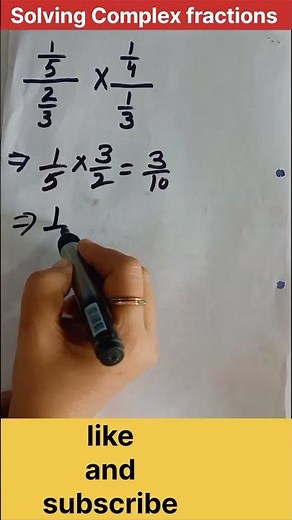 Solving Complex fractions
1/5 / 2/3 × 1/4 / 1/3
⇒ 1/5 × 3/2 = 3/10
⇒ 1
like
and
subscribe